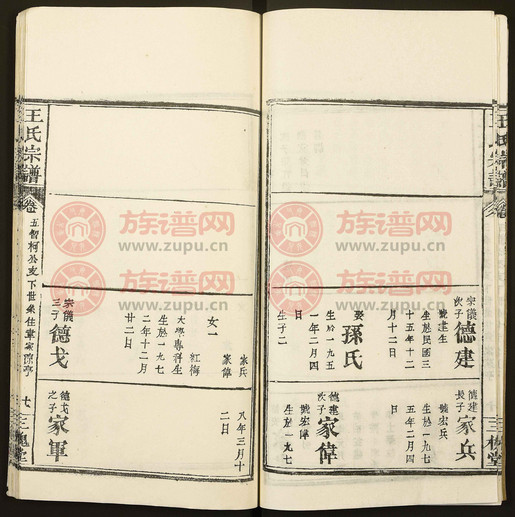 宗儀
次子
德建
號建生
生於民國三
十五年十二
月十二日
娶
孫氏
生於一九五
一年二月四
日
生子二
德建
長子
家兵
號宏兵
生於一九七
五年二月四
日
德建
次子
家偉
號宏偉
生於一九七
王氏宗譜
卷
三槐堂
家兵
家偉
女一
紅梅
大學專科生
生於一九七
二年十二月
廿二日
宗儀
三子
德戈
八年三月十
二日
德戈
之子
家軍
王氏宗譜
卷
三槐堂
族谱网
www.zupu.cn
族谱网
www.zupu.cn
族谱网
www.zupu.cn
族谱网
www.zupu.cn